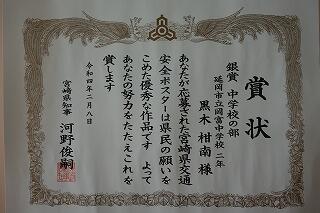 賞状
銀賞 中学校の部
延岡市立岡富中学校 二年
黒木 柑南 様
あなたが応募された宮崎県交通
安全ポスターは県民の願いを
こめた優秀な作品です よって
あなたの努力をたたえこれを
賞します
令和四年二月八日
宮崎県知事 河野俊嗣